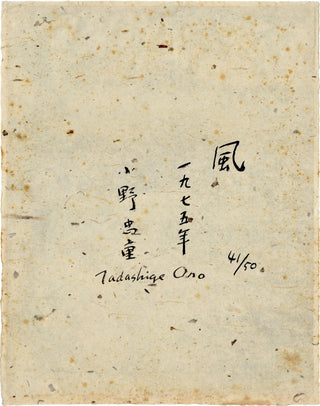 風
一九七五年
小野忠重
Tadashige Ono
41/50